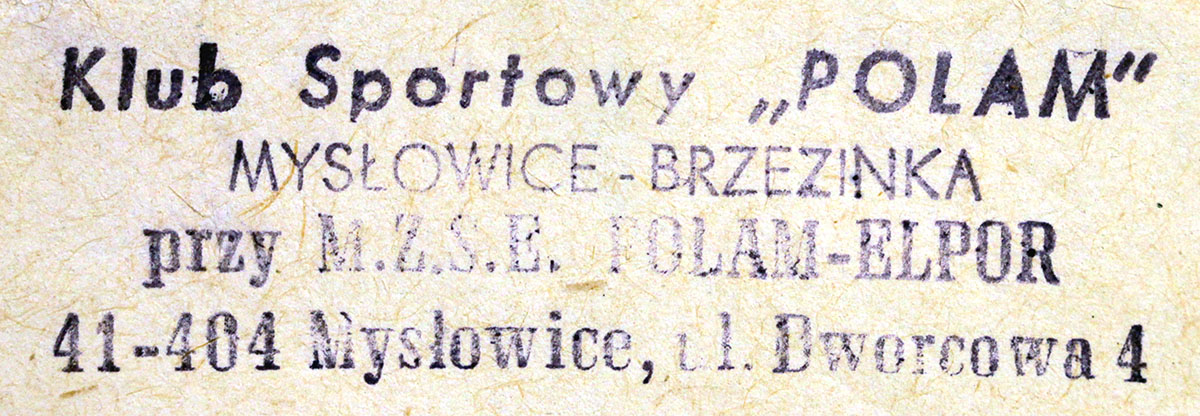 Klub Sportowy „POLAM”
MYSŁOWICE - BRZEZINKA
przy M.Z.S.E. POLAM-ELPOR
41-404 Mysłowice, ul. Dworcowa 4